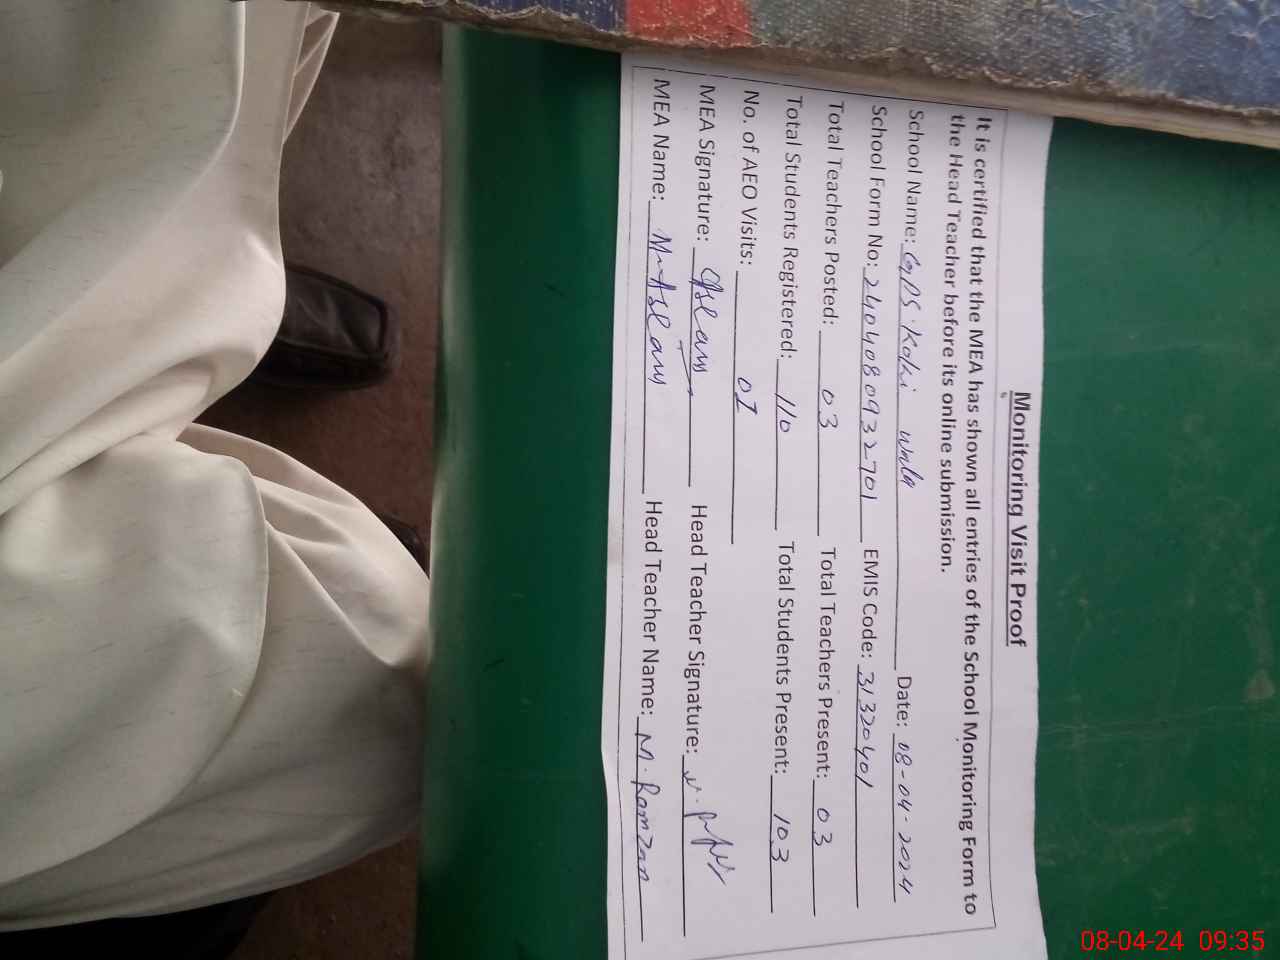 Monitoring Visit Proof
It is certified that the MEA has shown all entries of the School Monitoring Form to
the Head Teacher before its online submission.
School Name: GPS. Kothi wala Date: 08-04-2024
School Form No: 2404080932701 EMIS Code: 31320401
Total Teachers Posted: 03 Total Teachers Present: 03
Total Students Registered: 110 Total Students Present: 103
No. of AEO Visits: 01
MEA Signature: Aslam Head Teacher Signature:
MEA Name: M. Aslam Head Teacher Name: M. Ramzan
08-04-24 09:35